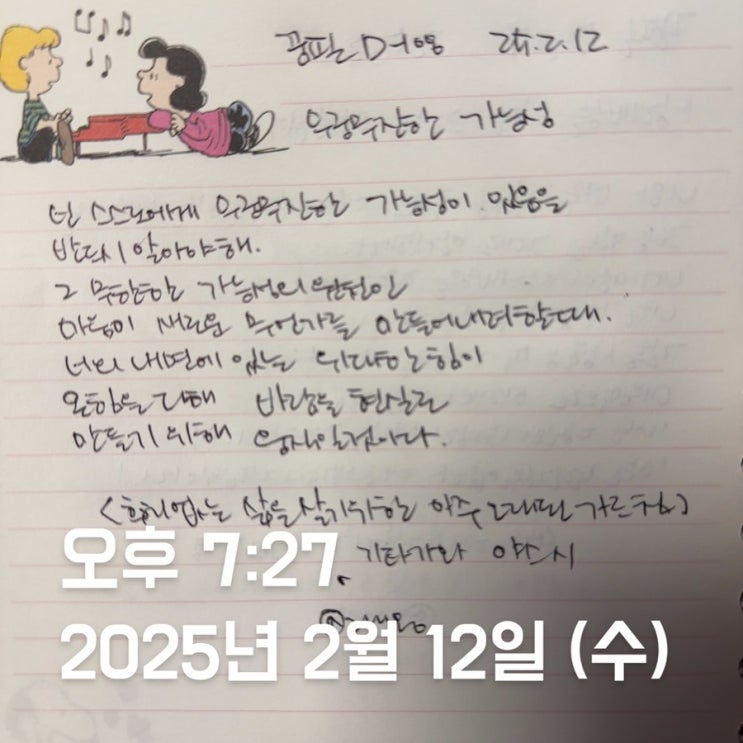 25.2.12
무궁무진한 가능성
넌 스스로에게 무궁무진한 가능성이 있음을
반드시 알아야해.
그 무한한 가능성의 원천인
마음이 새로운 무언가를 만들어내려할때.
너의 내면에 있는 위대한 힘이
온힘을 다해 바람을 현실로
만들기 위해 움직일것이다.
<후회없는 삶을 살기위한 아주 오래된 가르침>
기타가와 야스시
오후 7:27
2025년 2월 12일 (수)